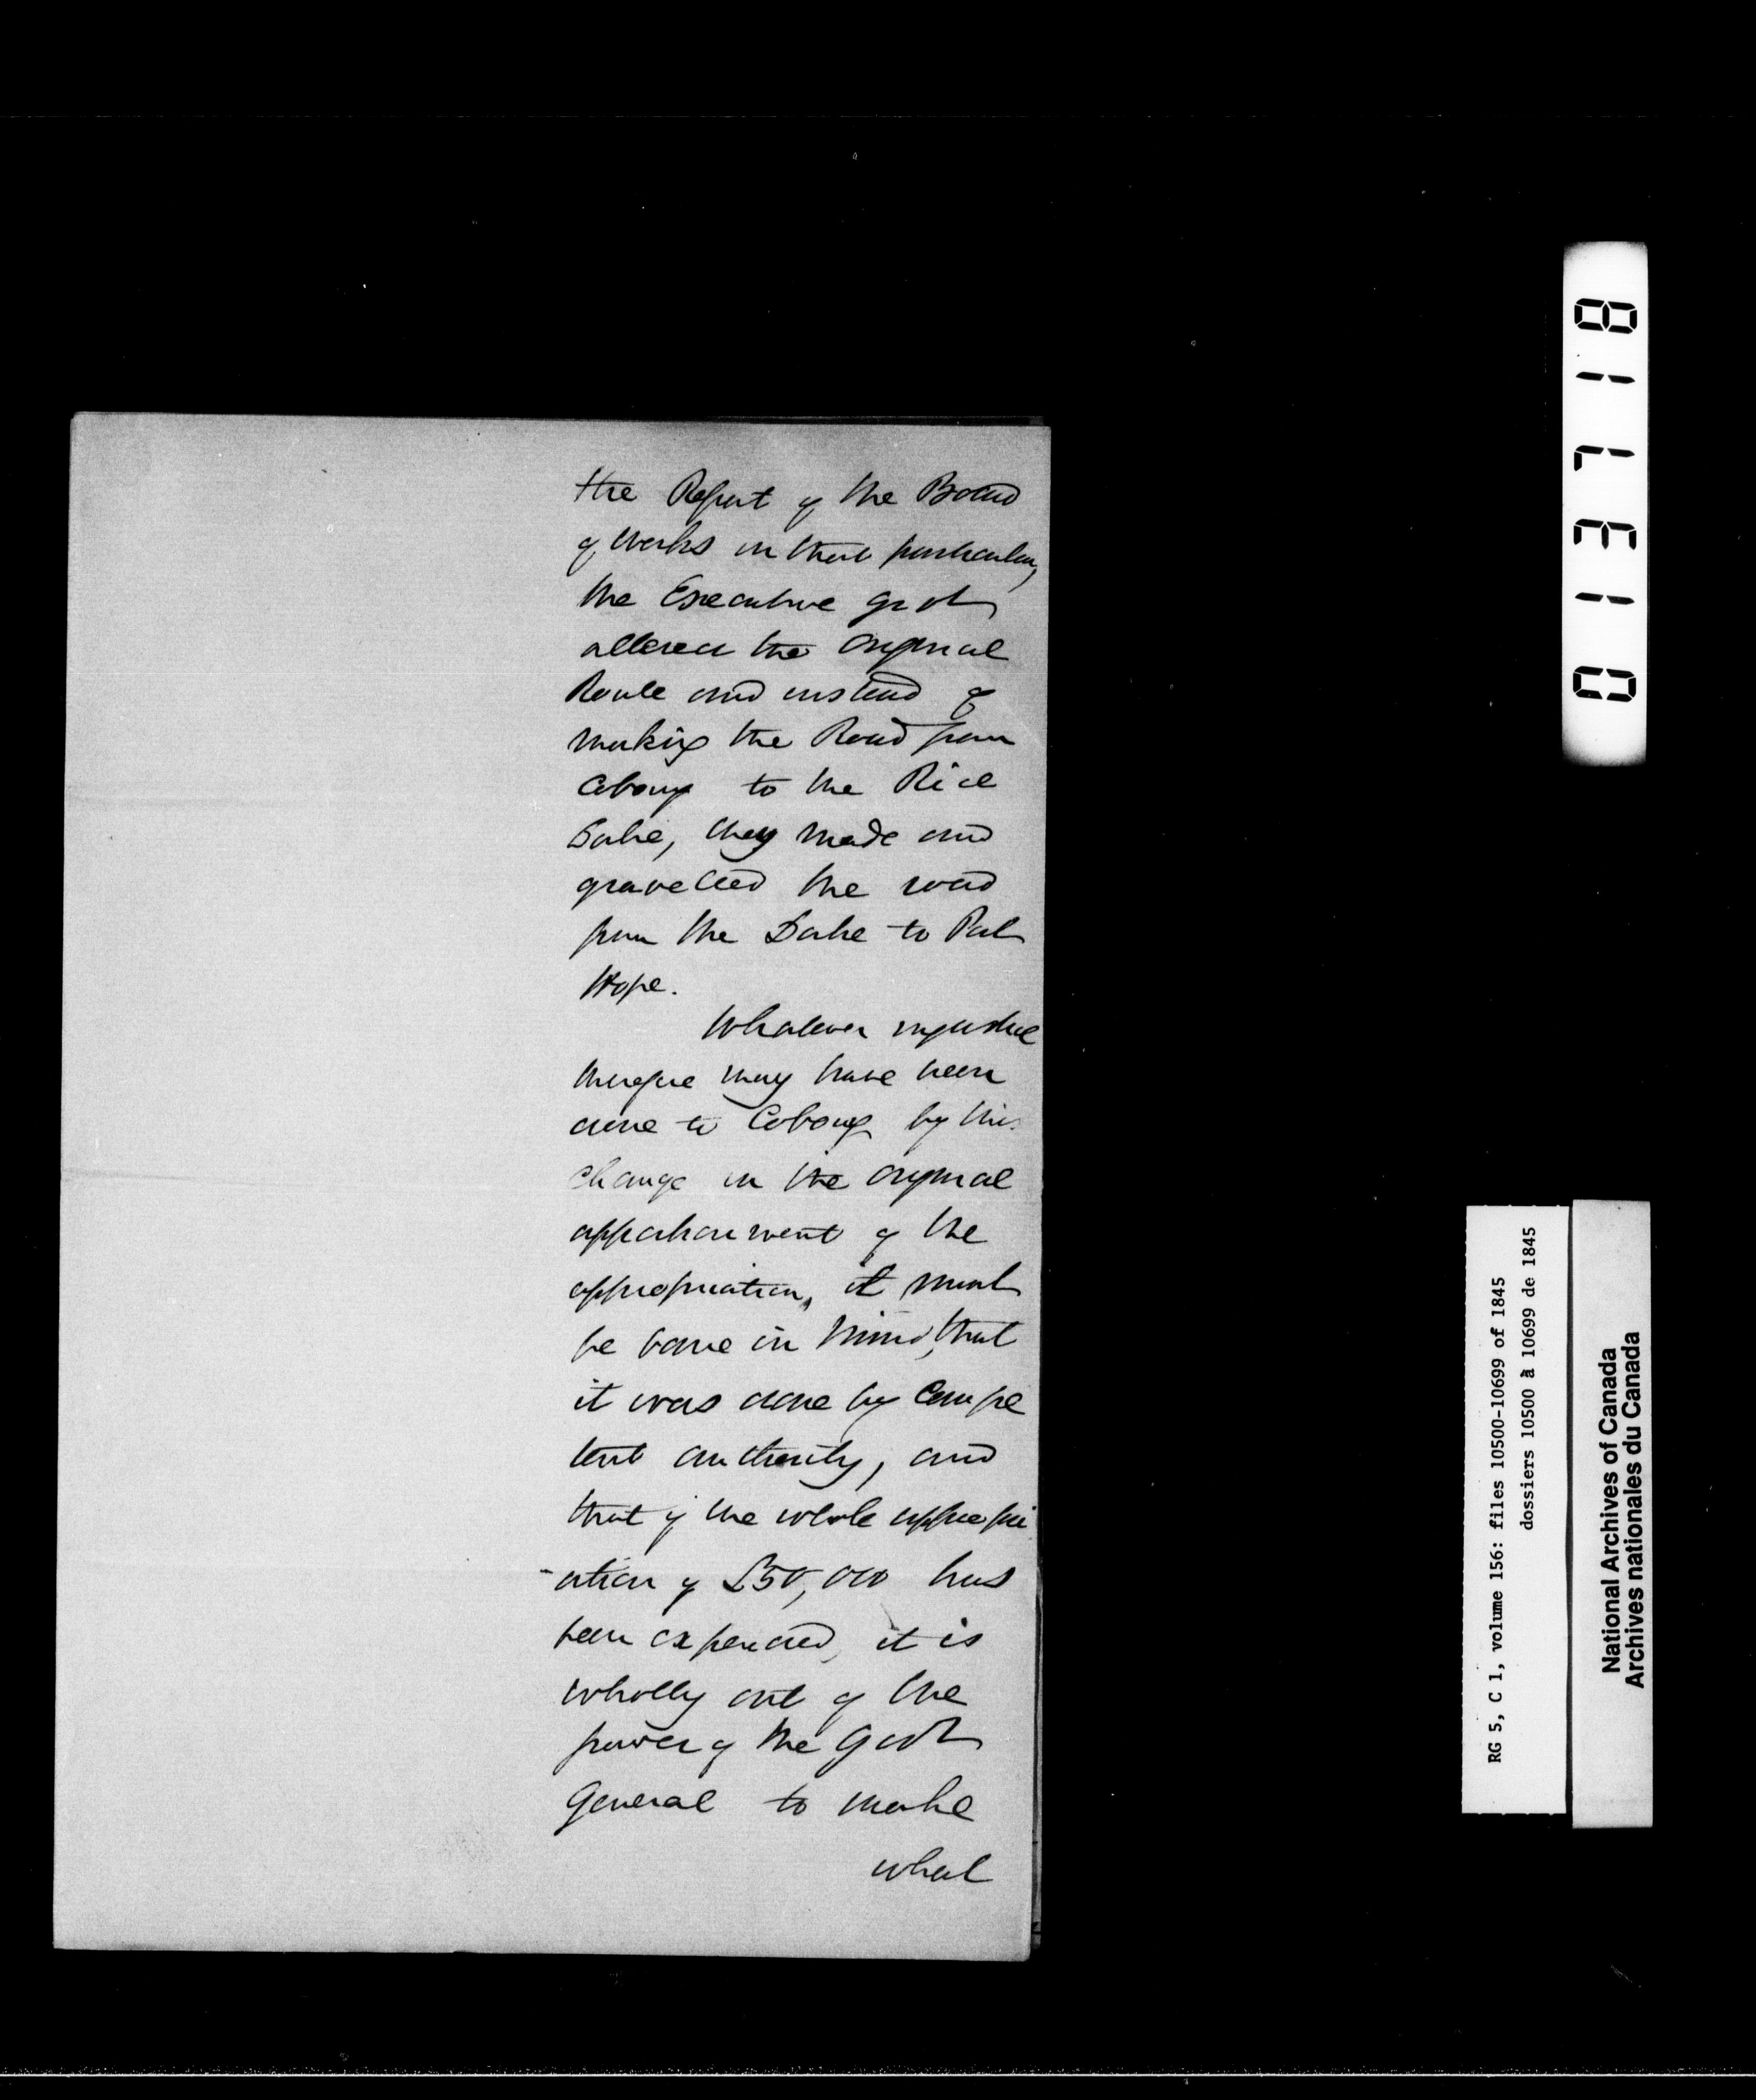 the Report of the Board
of Works in that particular,
the Executive Govt
altered the original
Route and instead of
making the Road from
Cobourg to the Rice
Lake, they made and
gravelled the road
from the Lake to Port
Hope.
Whatever injustice
therefore may have been
done to Cobourg by this
change in the original
apportionment of the
appropriation, it must
be borne in mind, that
it was done by Compe
tent authority, and
that if the whole appropri
-ation of £50,000 has
been expended, it is
wholly out of the
power of the Govr
General to make
what
013718
RG 5, C 1, volume 156: files 10500-10699 of 1845
dossiers 10500 à 10699 de 1845
National Archives of Canada
Archives nationales du Canada